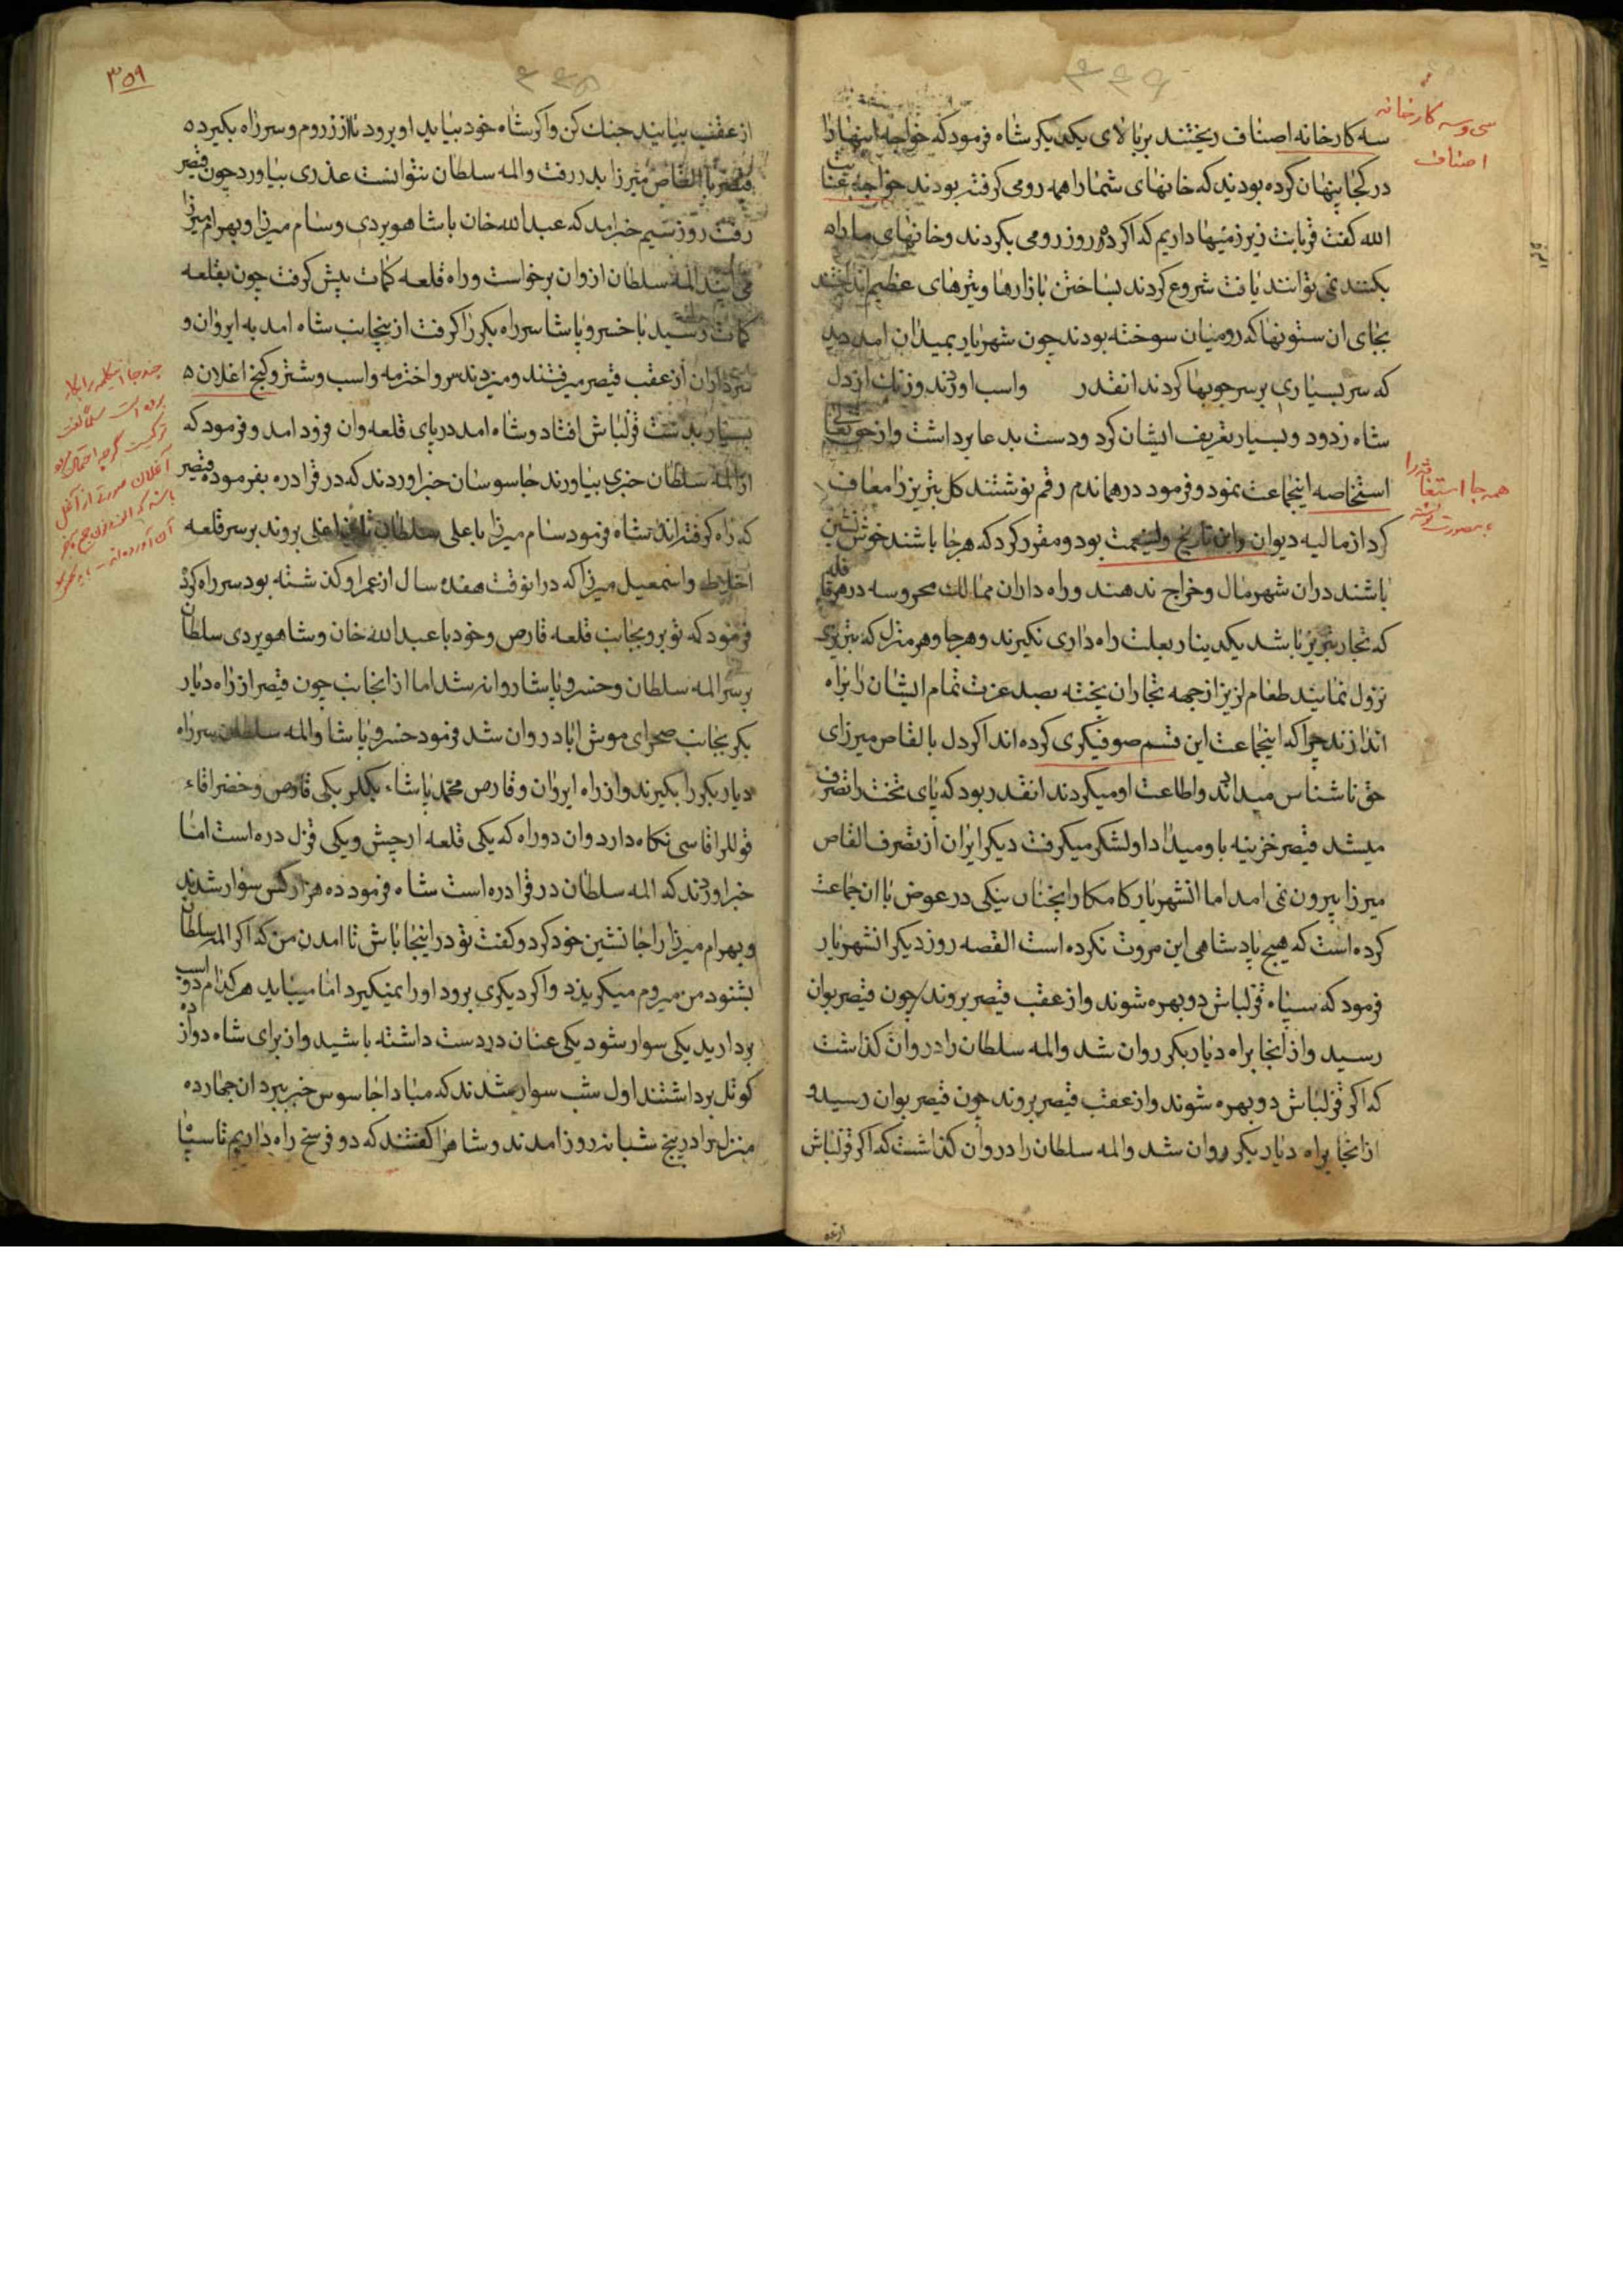 سی و سه کارخانه
اصناف
سه کارخانه اصناف ریختند بر بالای یکدیکر شاه فرمود که خواجه اینها را
در کجا پنهان کرده بودید که خانهای شما را همه رومی کرفته بودند خواجه عنایت
الله کفت قربانت زیرزمینها داریم که اکر ده روز رومی بکردند و خانهای ما راه
بکنند نمی توانند یافت شروع کردند بساختن بازارها و تیرهای عظیم انداختند
بجای ان ستونها که رومیان سوخته بودند چون شهریار بمیدان امد دید
که سر بسیاری بر سر چوبها کردند انقدر واسب اوردند وزنک از دل
شاه زدود و بسیار تعریف ایشان کرد و دست بدعا برداشت و از حق تعالی
استخاصه اینجماعت نمود و فرمود در هماندم رقم نوشتند کل تبریز را معاف
همه جا استغاثه را
بصورت نوشته
کرد از مالیه دیوان و این تاریخ ولینعمت بود و مقرر کرد که هرجا باشند خوش نشین
باشند دران شهر مال و خراج ندهند و راه داران ممالک محروسه در هر قافله
که تجار تبریز باشد یکدینار بعلت راه داری نکیرند و هرجا و هر منزل که تبریزی
نزول نمایند طعام لزیز از جهه تجاران پخته بصد عزت تمام ایشان را براه
اندازند چرا که اینجماعت این قسم صوفیکری کرده اند اکر دل بالقاص میرزای
حق ناشناس میدادند و اطاعت او میکردند انقدر بود که پای تخت را تصرف
میشد قیصر خزینه باو میداد او لشکر میکرفت دیکر ایران از تصرف القاص
میرزا بیرون نمی امد اما انشهریار کامکار اینچنان نیکی در عوض با ان جماعت
کرده است که هیچ پادشاهی این مروت نکرده است القصه روز دیکر انشهریار
فرمود که سپاه قزلباش دو بهره شوند و از عقب قیصر بروند چون قیصر بوان
رسید و از انجا براه دیاربکر روان شد والمه سلطان را در وان کذاشت
که اکر قزلباش دو بهره شوند و از عقب قیصر بروند چون قیصر بوان رسید و
از انجا براه دیاربکر روان شد والمه سلطان را در وان کذاشت که اکر قزلباش
۳۵۹
از عقب بیایند جنک کن و اکر شاه خود بیاید او برود تا ارزروم و سر راه بکیرد
قیصر با القاص میرزا بدر رفت والمه سلطان نتوانست عذری بیاورد چون قیصر
رفت روز سیم خبر امد که عبدالله خان با شاهویردی و سام میرزا و بهرام میرزا
می ایند المه سلطان از وان برخواست و راه قلعه کمات پیش کرفت چون بقلعه
کمات رسید با خسرو پاشا سر راه بکر را کرفت ازینجانب شاه امد به ایروان و
سرداران از عقب قیصر میرفتند و میزدند سر و اخترمه واسب و شتر و کیخ اغلان
بسیار بدست قزلباش افتاد و شاه امد در پای قلعه وان فرود امد و فرمود که
از المه سلطان خبری بیاورند جاسوسان خبر اوردند که در قرا دره بفرموده قیصر
که راه کرفته اند شاه فرمود سام میرزا با علی سلطان بروند بر سر قلعه
اخلاط و اسمعیل میرزا که درانوقت هفده سال از عمر او کذشته بود سر راه کرد
فرمود که تو برو بجانب قلعه قارص و خود با عبدالله خان و شاهویردی سلطان
بر سر المه سلطان و خسرو پاشا روانه شد اما از انجانب چون قیصر از راه دیار
بکر بجانب صحرای موش اباد روان شد فرمود خسرو پاشا والمه سلطان سر راه
دیاربکر را بکیرند و از راه ایروان و قارص محمد پاشاء بکلربکی قارص و خضر اقاء
قوللر اقاسی نکاه دارد و ان دو راه که یکی قلعه ارجیش و یکی قزل دره است اما
خبر اوردند که المه سلطان در قرا دره است شاه فرمود ده هزار کس سوار شدند
و بهرام میرزا را جانشین خود کرد و کفت تو در اینجا باش تا امدن من که اکر المه سلطان
بشنود من میروم میکریزد و اکر دیکری برود او را نمیکیرد اما میباید هر کدام دو اسب
بردارید یکی سوار شود یکی عنان در دست داشته باشید و از برای شاه دوازده
کوتل برداشتند اول شب سوار شدند که مبادا جاسوس خبر ببرد ان چهارده
منزل را در پنج شبانه روز امدند و شاه را کفتند که دو فرسخ راه داریم تا سپاه